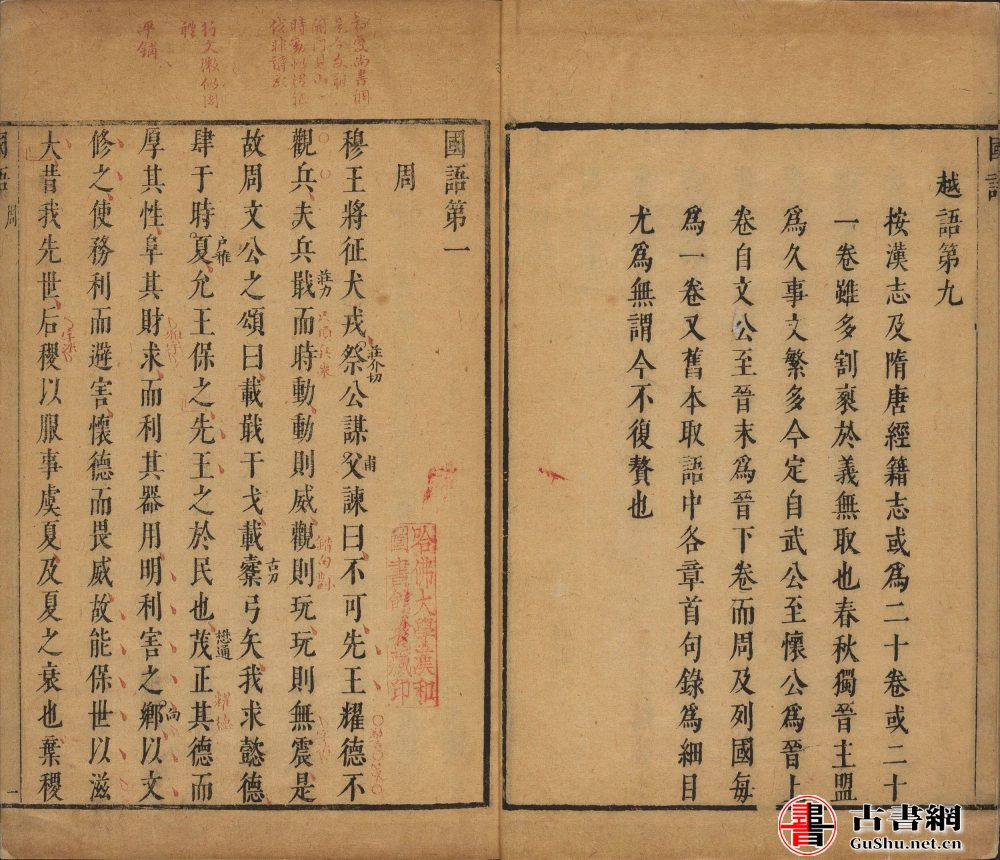 越語第九
按漢志及隋唐經籍志或為二十卷或二十
一卷雖多割裒於義無取也春秋獨晉主盟
為久事文繁多今定自武公至懷公為晉上
卷自文公至晉末為晉下卷而周及列國每
為一卷又舊本取語中各章首句錄為細目
尤為無謂今不復贅也
國語第一
周
穆王將征犬戎祭公謀父諫曰不可先王耀德不
莊介切
甫
觀兵夫兵戢而時動動則威觀則玩玩則無震是
莊力
故周文公之頌曰載戢干戈載櫜弓矢我求懿德
古刀
肆于時夏允王保之先王之於民也茂正其德而
戶雅
懋通
厚其性阜其財求而利其器用明利害之鄉以文
向
修之使務利而避害懷德而畏威故能保世以滋
大昔我先世后稷以服事虞夏及夏之衰也棄稷
國語
周
一
哈佛大學漢和
圖書館珍藏印
書
古書網
GuShu.net.cn